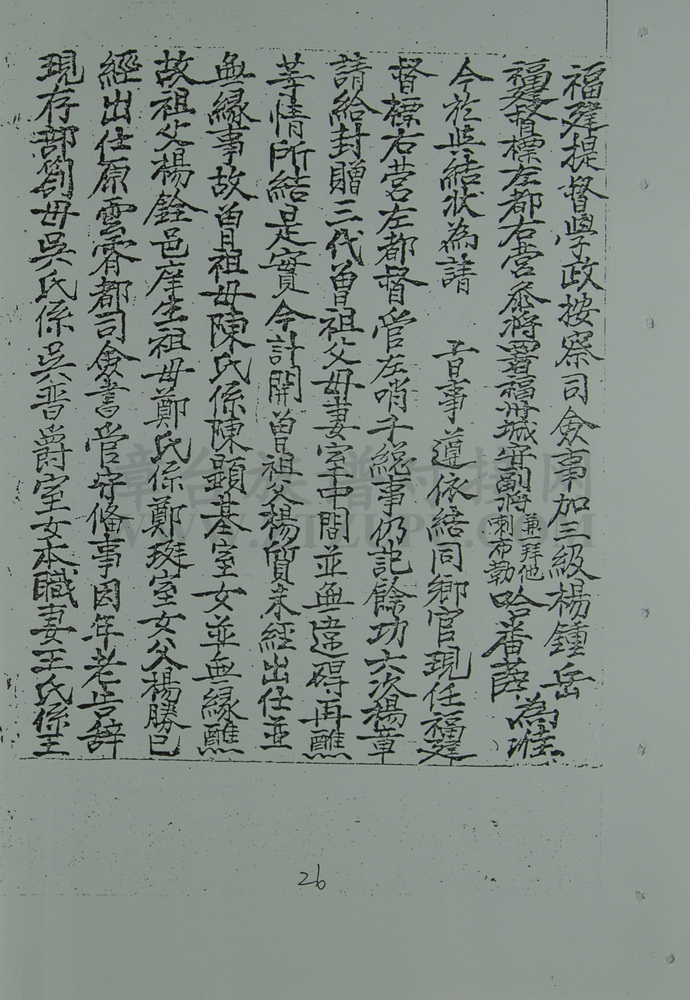 福建提督學政按察司僉事加三級楊鍾岳
福建督標左都右營叅將署福州城守副將兼拜他喇布勒哈番薛 為准
今於與結狀為請 旨事遵依結同鄉官現任福建
督標右營左都督管左哨千總事仍記餘功六次楊章
請給封贈三代曾祖父母妻室中間並無違碍再醮
等情所結是實今計開曾祖父楊質未經出仕並
無緣事故曾祖母陳氏係陳顯基室女並無緣醮
故祖父楊銓邑庠生祖母鄭氏係鄭珽室女父楊勝已
經出仕原雲霄都司僉書管守俻事因年老告辭
現存部劄母吳氏係吳晋爵室女本職妻王氏係王
26